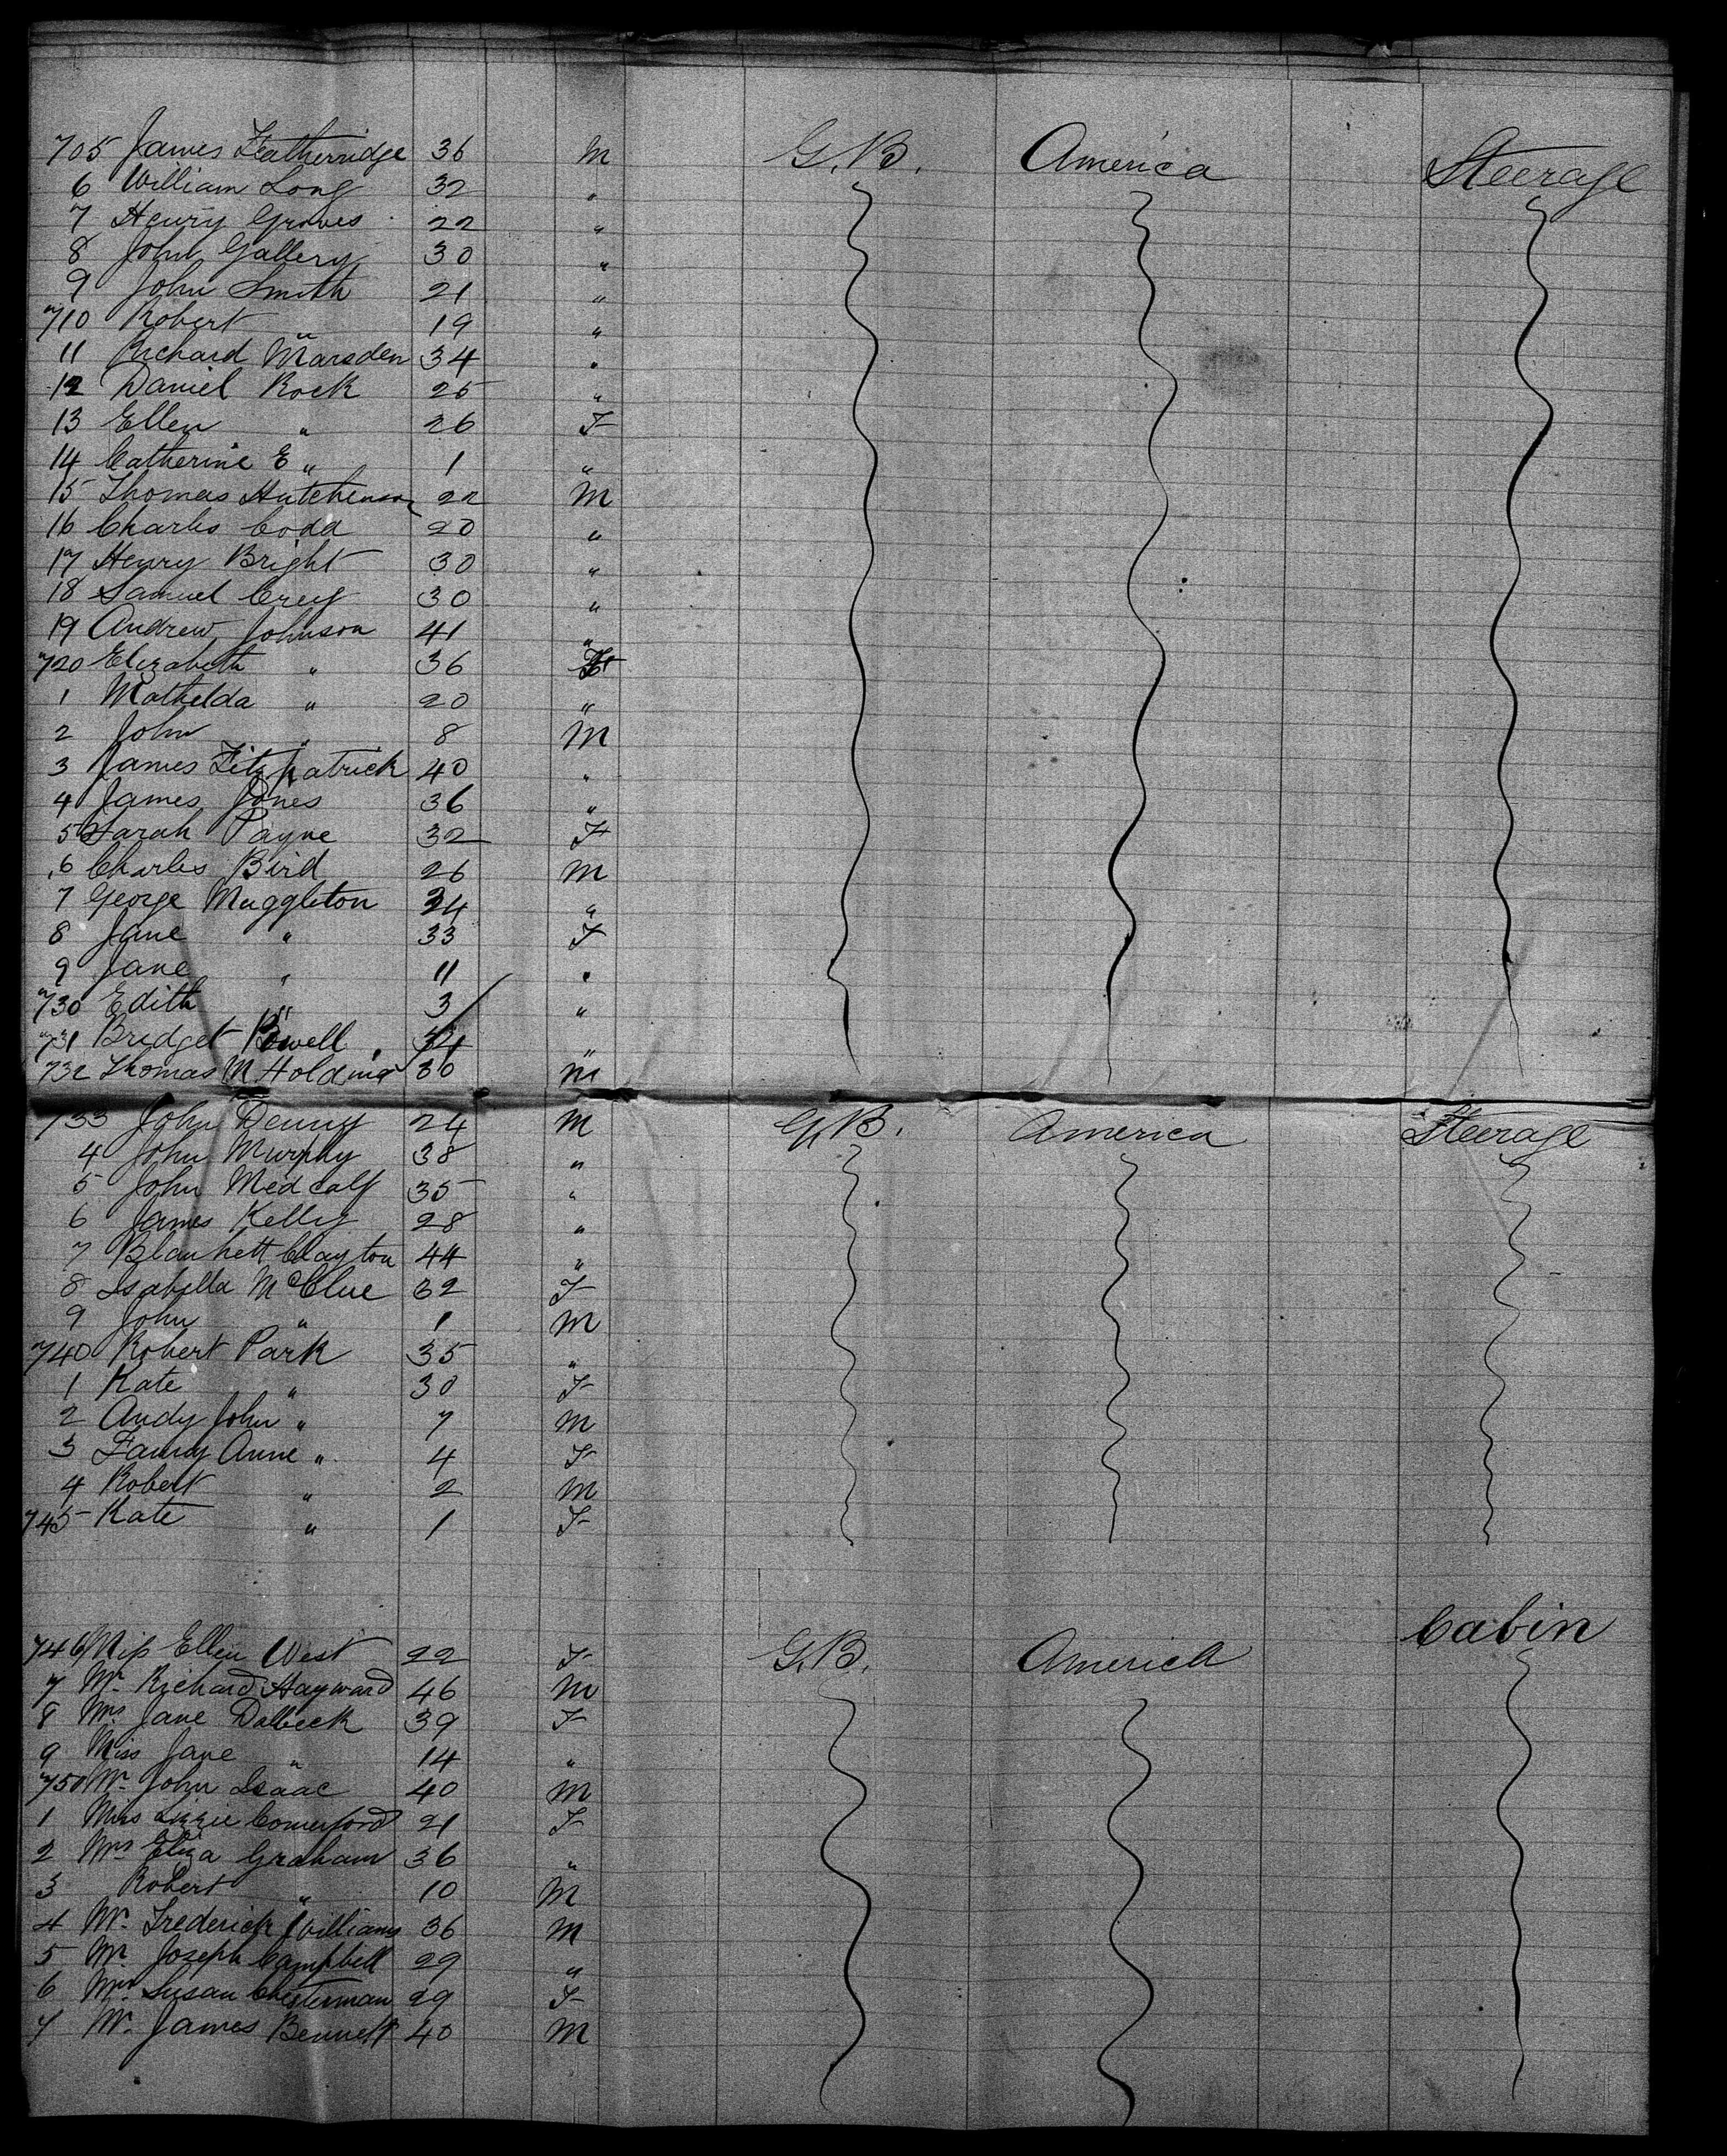 705 James Featherridge 36 M G.B. America Steerage
6 William Long 32 "
7 Henry Groves 22 "
8 John Gallery 30 "
9 John Smith 21 "
710 Robert " 19 "
11 Richard Marsden 34 "
12 Daniel Rock 25 "
13 Ellen " 26 F
14 Catherine E " 1 "
15 Thomas Hutchenson 22 M
16 Charles Codd 20 "
17 Henry Bright 30 "
18 Samuel Crey 30 "
19 Andrew Johnson 41 "
720 Elizabeth " 36 F
1 Mathelda " 20 "
2 John " 8 M
3 James Fitzpatrick 40 "
4 James Jones 36 "
5 Sarah Payne 32 F
6 Charles Bird 26 M
7 George Muggleton 34 "
8 Jane " 33 F
9 Jane " 11 "
730 Edith " 3 "
731 Bridget Powell 34 "
732 Thomas M Holding 30 M
733 John Denny 24 M G.B. America Steerage
4 John Murphy 38 "
5 John Medcalf 35 "
6 James Kelly 28 "
7 Blankett Clayton 44 "
8 Isabella McClue 32 F
9 John " 1 M
740 Robert Park 35 "
1 Kate " 30 F
2 Andy John " 7 M
3 Fanny Anne " 4 F
4 Robert " 2 M
745 Kate " 1 F
Cabin
746 Miss Ellen West 22 F G.B. America
7 Mr Richard Hayward 46 M
8 Mrs Jane Dalbeck 39 F
9 Miss Jane " 14 "
750 Mr John Isaac 40 M
1 Miss Lizzie Comerford 21 F
2 Mrs Eliza Graham 36 "
3 Robert " 10 M
4 Mr Frederick Williams 36 M
5 Mr Joseph Campbell 29 "
6 Mrs Susan Chesterman 29 F
7 Mr James Bennett 40 M